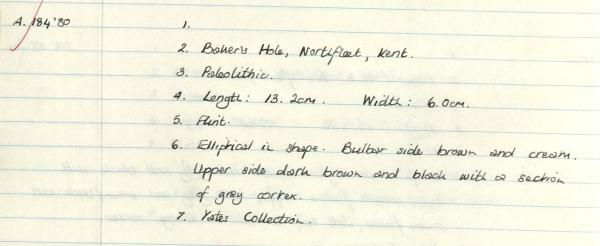 A. 184'80
1.
2. Baker's Hole, Northfleet, Kent.
3. Paleolithic.
4. Length: 13.2cm. Width: 6.0cm.
5. Flint.
6. Elliptical in shape. Bulbar side brown and cream.
Upper side dark brown and black with a section
of grey cortex.
7. Yates Collection.